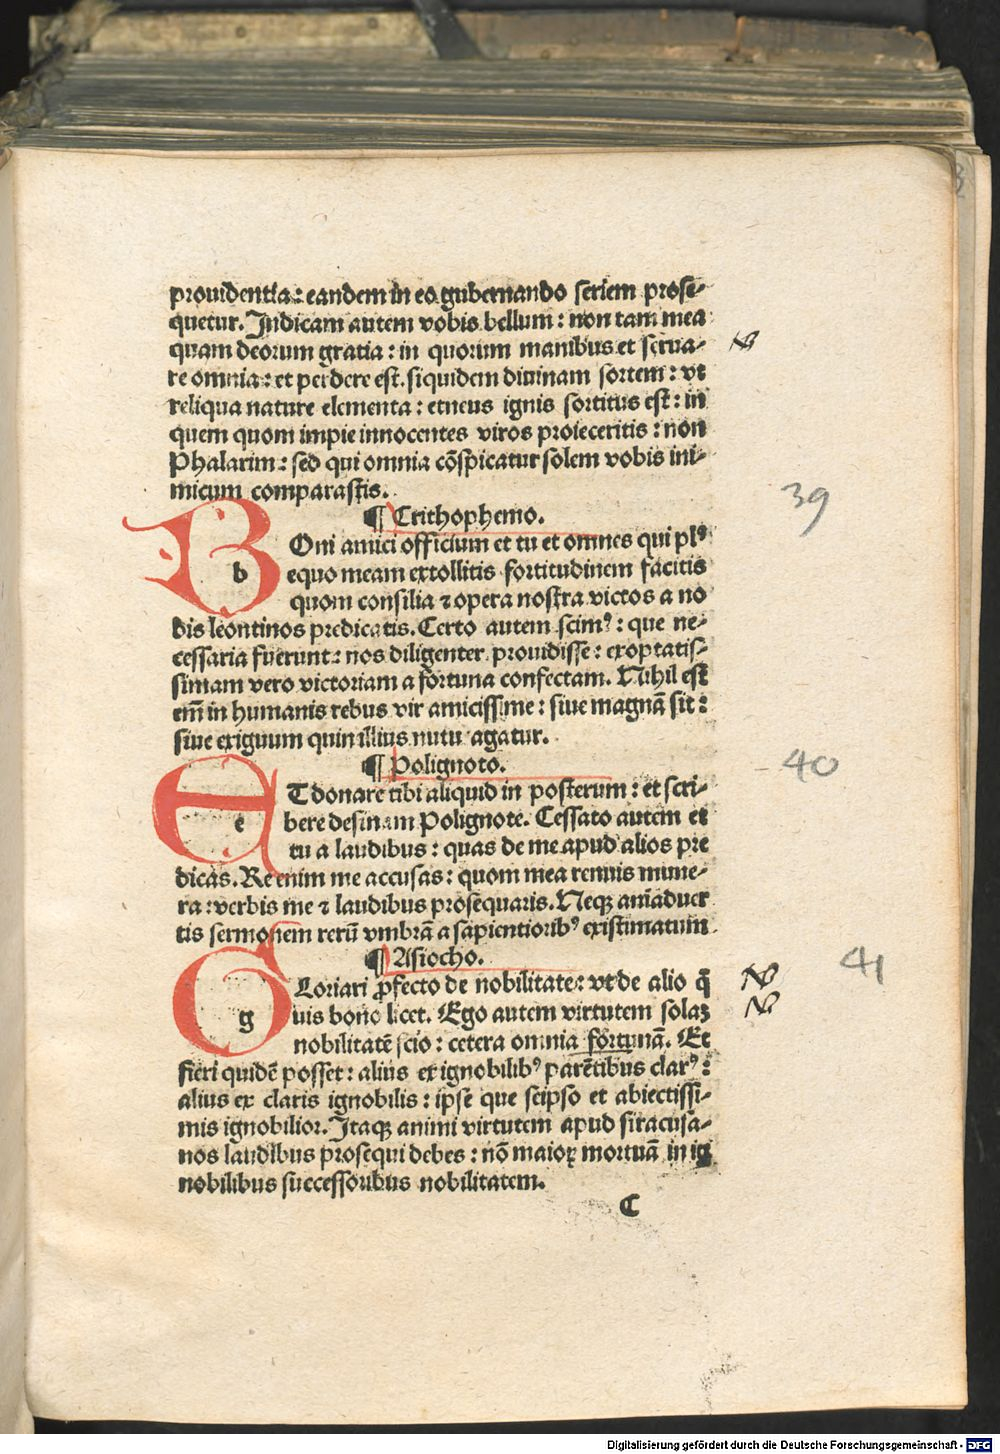 prouidentia: eandem in eo gubernando seriem prose⸗
quetur. Indicam autem vobis bellum: non tam mea
quam deorum gratia: in quorum manibus et serua⸗
re omnia: et perdere est. siquidem diuinam sortem: vt
reliqua nature elementa: etneus ignis sortitus est: in
quem quom impie innocentes viros proieceritis: non
Phalarim: sed qui omnia cōspicatur solem vobis ini⸗
micum comparastis.
39
¶ Crithophemo.
b
Oni amici officium et tu et omnes qui plꝰ
equo meam extollitis fortitudinem facitis
quom consilia ⁊ opera nostra victos a no
bis leontinos predicatis. Certo autem scimꝰ: que ne⸗
cessaria fuerunt: nos diligenter prouidisse: exoptatis⸗
simam vero victoriam a fortuna confectam. Nihil est
em̄ in humanis rebus vir amicissime: siue magnā sit:
siue exiguum quin illius nutu agatur.
¶ Polignoto.
40
e
T donare tibi aliquid in posterum: et scri⸗
bere desinam Polignote. Cessato autem et
tu a laudibus: quas de me apud alios pre
dicas. Re enim me accusas: quom mea rennis mune⸗
ra: verbis me ⁊ laudibus prosequaris. Neqꝫ aīaduer
tis sermonem rerū vmbrā a sapientioribꝰ existimatum
¶ Asiocho.
41
g
Loriari ꝓfecto de nobilitate: vt de alio q̄
uis bono licet. Ego autem virtutem solaꝫ
nobilitatē scio: cetera omnia fortunā. Et
fieri quidē posset: alius ex ignobilibꝰ parētibus clarꝰ:
alius ex claris ignobilis: ipse que seipso et abiectissi⸗
mis ignobilior. Itaqꝫ animi virtutem apud siracusa⸗
nos laudibus prosequi debes: nō maioꝝ mortuā in ig
nobilibus successoribus nobilitatem.
C
Digitalisierung gefördert durch die Deutsche Forschungsgemeinschaft - DFG